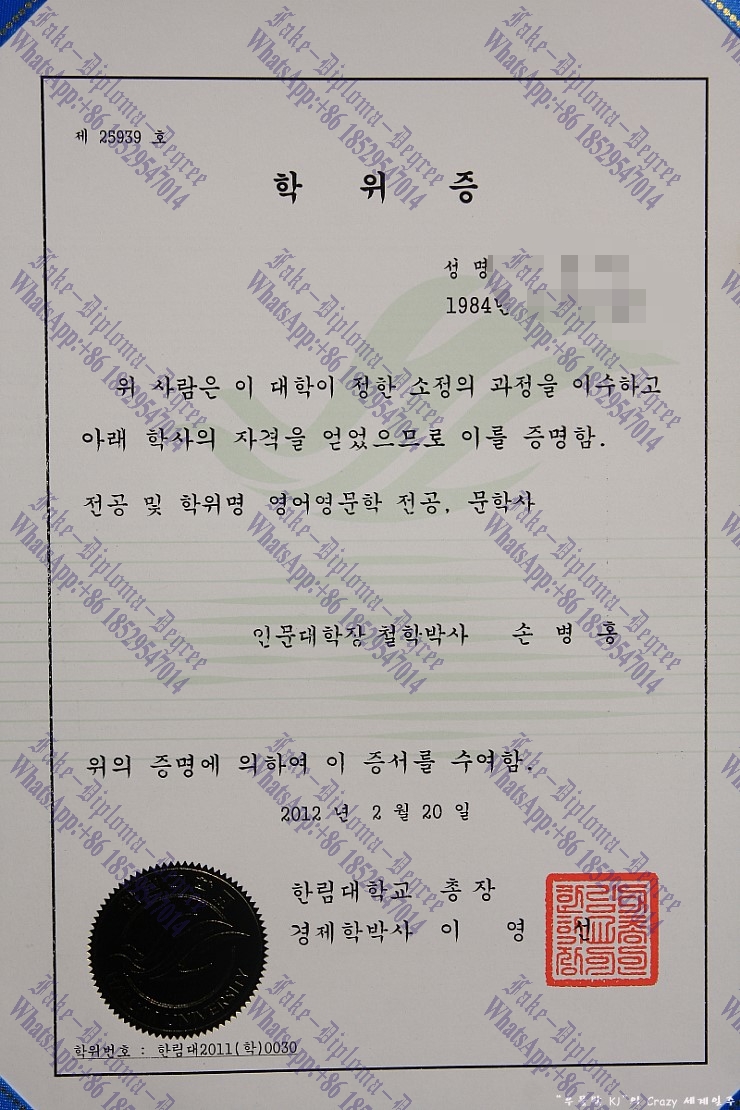 제 25939 호
학 위 증
성 명
1984년
위 사람은 이 대학이 정한 소정의 과정을 이수하고
아래 학사의 자격을 얻었으므로 이를 증명함.
전공 및 학위명 영어영문학 전공, 문학사
인문대학장 철학박사 손 병 홍
위의 증명에 의하여 이 증서를 수여함.
2012 년 2 월 20 일
한림대학교 총장
경제학박사 이 영 선
UNIVERSITY
학위번호 : 한림대2011(학)0030
Fake-Diploma-Degree
WhatsApp:+86 18529547014
Crazy 세계일주